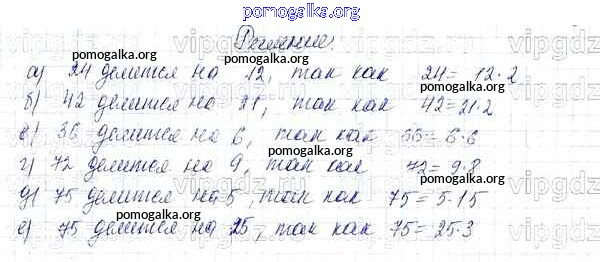 pomogalka.org
Решение:
vipgdz
pomogalka.org pomogalka.org
а) 24 делится на 12, так как 24 = 12·2
б) 42 делится на 21, так как 42 = 21·2
pomogalka.org
в) 36 делится на 6, так как 36 = 6·6
pomogalka.org pomogalka.org
г) 72 делится на 9, так как 72 = 9·8
pomogalka.org
vipgdz vipgdz vipgdz
д) 75 делится на 5, так как 75 = 5·15
pomogalka.org pomogalka.org
е) 75 делится на 25, так как 75 = 25·3
pomogalka.org